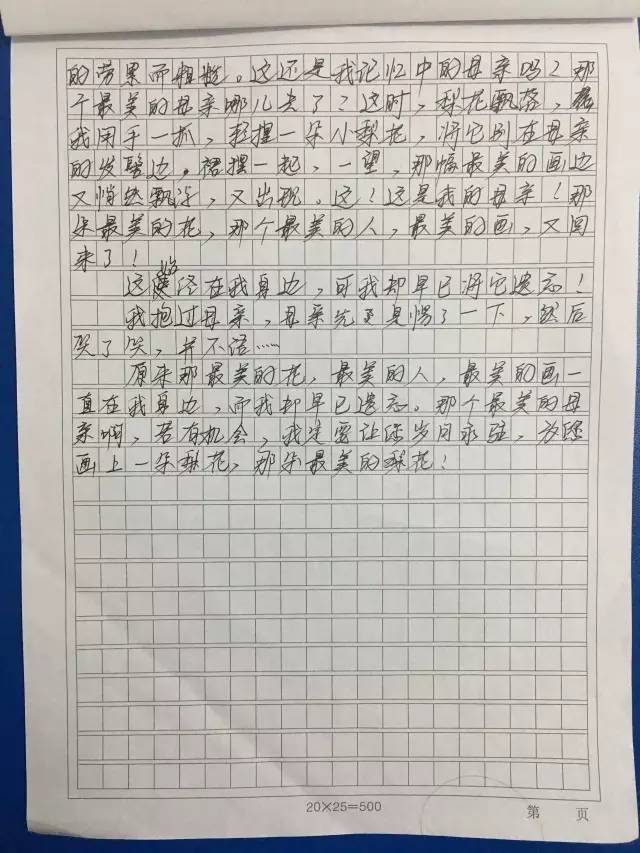 的劳累而粗糙。这还是我记忆中的母亲吗？那
个最美的母亲哪儿去了？这时，梨花飘落，
我用手一抓，轻捏一朵小梨花，将它别在母亲
的发髻边。裙摆一起，一望，那幅最美的画边
又悄然飘浮，又出现。这！这是我的母亲！那
朵最美的花，那个最美的人，最美的画，又回
来了！
这曾经在我身边，可我却早已将它遗忘！
我抱过母亲，母亲先是愣了一下，然后
笑了笑，并不语……
原来那最美的花，最美的人，最美的画一
直在我身边，而我却早已遗忘。那个最美的母
亲啊，若有机会，我定要让你岁月永驻，为你
画上一朵梨花，那朵最美的梨花！
20×25=500
第 页